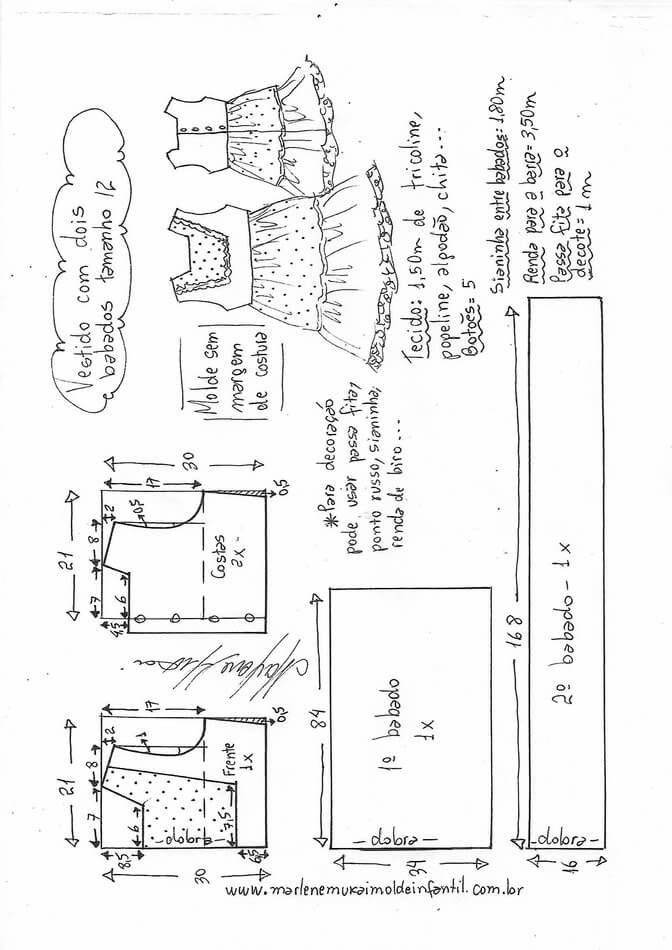 Vestido com dois
babados tamanho 12
Molde sem
margem
de costura
Tecido: 1,50m de tricoline,
popeline, algodão, chita...
Botões = 5
Sianinha entre babados: 1,80m
Renda para a barra = 3,50m
Passa fita para o
decote = 1m
*Para decoração
pode usar passa fita,
ponto russo, sianinha,
renda de biro...
21
7
8
2
17
30
0,5
6
4,5
0,5
Costas
2x
21
7
8
2
17
1
6
8,5
7,5
6,5
0,5
30
Frente
1x
dobra
84
34
1º babado
1x
dobra
168
16
2º babado - 1x
dobra
www.marlenemukaimoldeinfantil.com.br